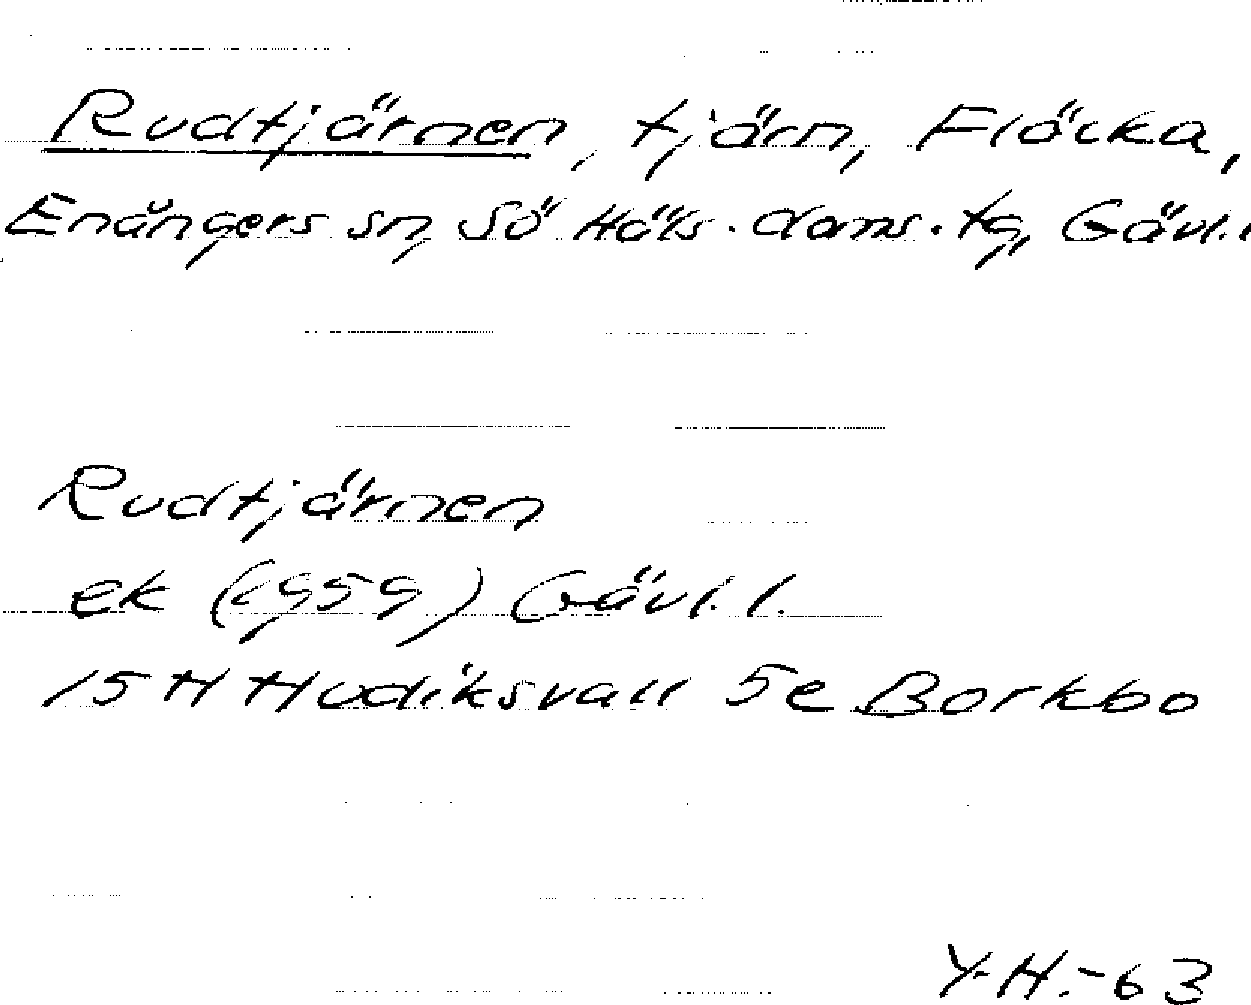 Rudtjärnen, tjärn, Fläcka,
Enångers sn, Sö Häls. doms. tg, Gävl. l
Rudtjärnen
ek (1959) Gävl. l.
15 H Hudiksvall 5e Borkbo
Y.H.-63